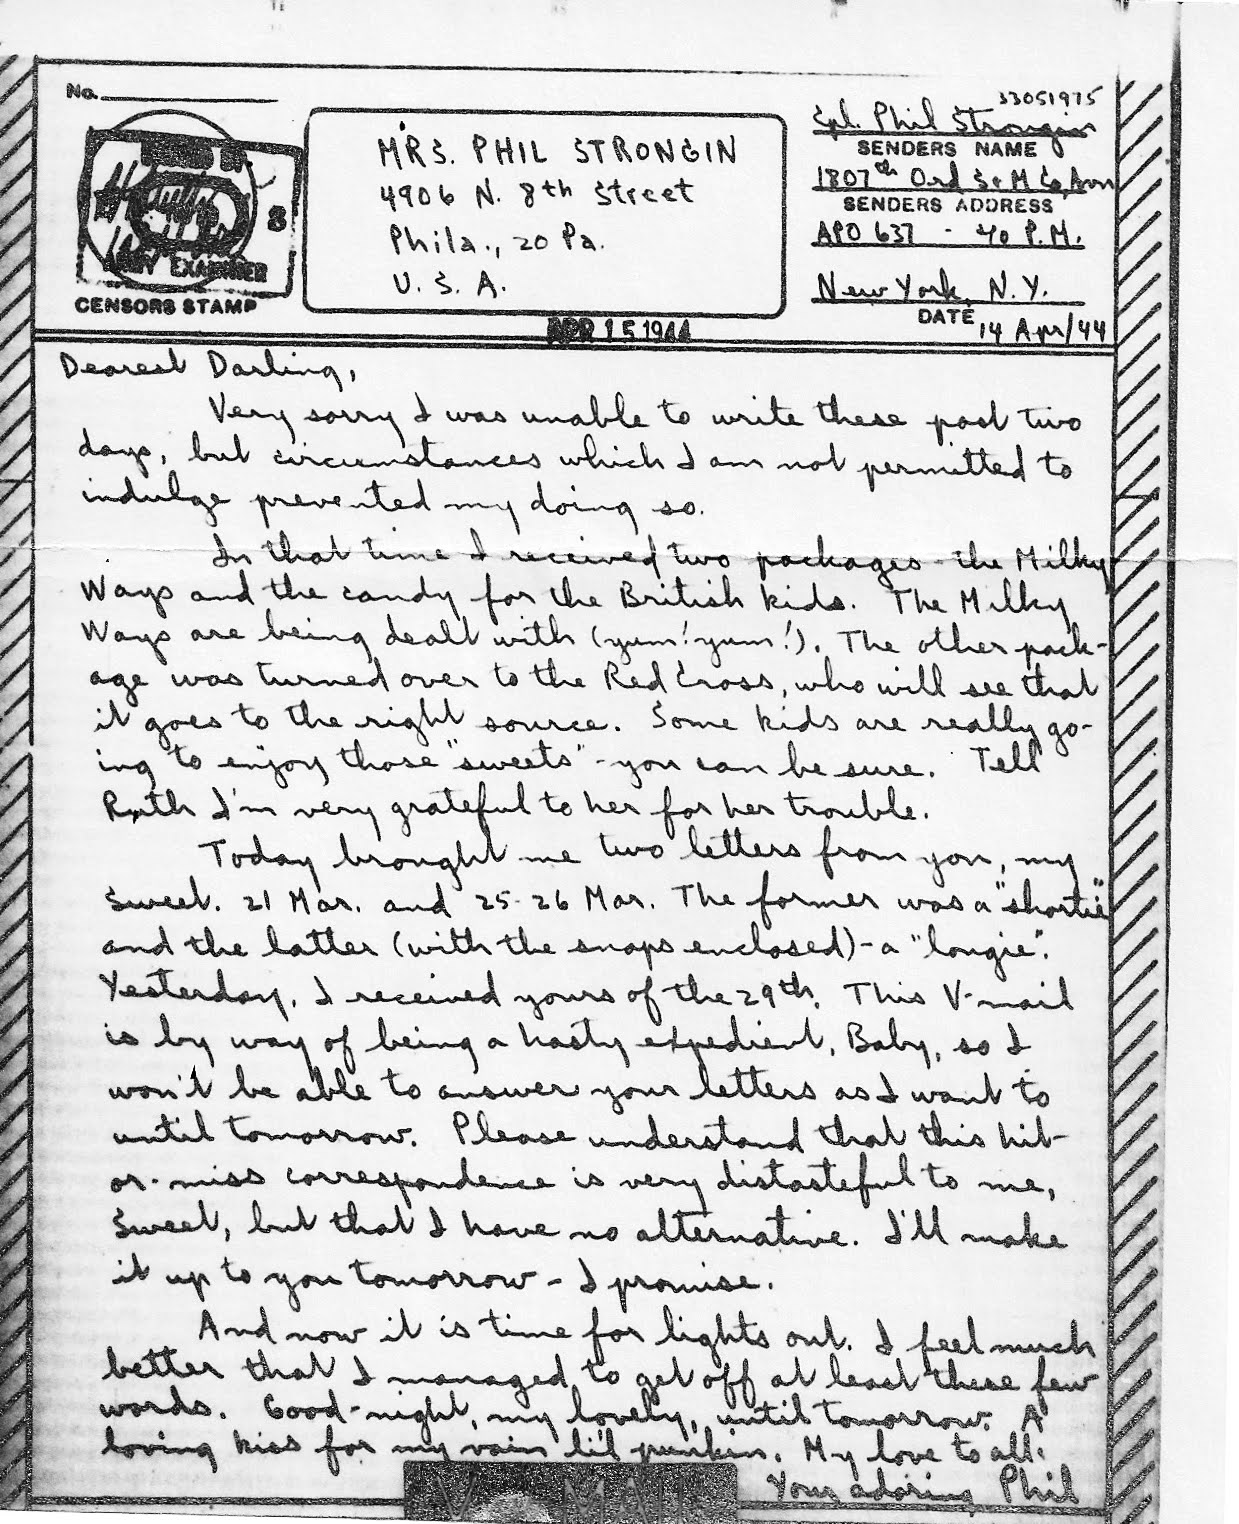 No.
33051975
Cpl. Phil Strongin
SENDERS NAME
1807th Ord S & M Co, Avn
SENDERS ADDRESS
APO 637 - 40 P.M.
New York, N.Y.
DATE 14 Apr/44
MRS. PHIL STRONGIN
4906 N. 8th Street
Phila., 20 Pa.
U. S. A.
ARMY EXAMINER
CENSORS STAMP
APR 15 1944
Dearest Darling,
Very sorry I was unable to write these past two
days, but circumstances which I am not permitted to
indulge prevented my doing so.
In that time I received two packages - the Milky
Ways and the candy for the British kids. The Milky
Ways are being dealt with (yum! yum!). The other pack-
age was turned over to the Red Cross, who will see that
it goes to the right source. Some kids are really go-
ing to enjoy those "sweets" - you can be sure. Tell
Ruth I'm very grateful to her for her trouble.
Today brought me two letters from you, my
sweet. 21 Mar. and 25-26 Mar. The former was a "shortie"
and the latter (with the snaps enclosed) - a "longie".
Yesterday, I received yours of the 29th. This V-mail
is by way of being a hasty expedient, Baby, so I
won't be able to answer your letters as I want to
until tomorrow. Please understand that this hit-
or-miss correspondence is very distasteful to me,
Sweet, but that I have no alternative. I'll make
it up to you tomorrow - I promise.
And now it is time for lights out. I feel much
better that I managed to get off at least these few
words. Good-night, my lovely, until tomorrow. A
loving kiss for my vain li'l punkin. My love to all.
Your adoring Phil
V MAIL